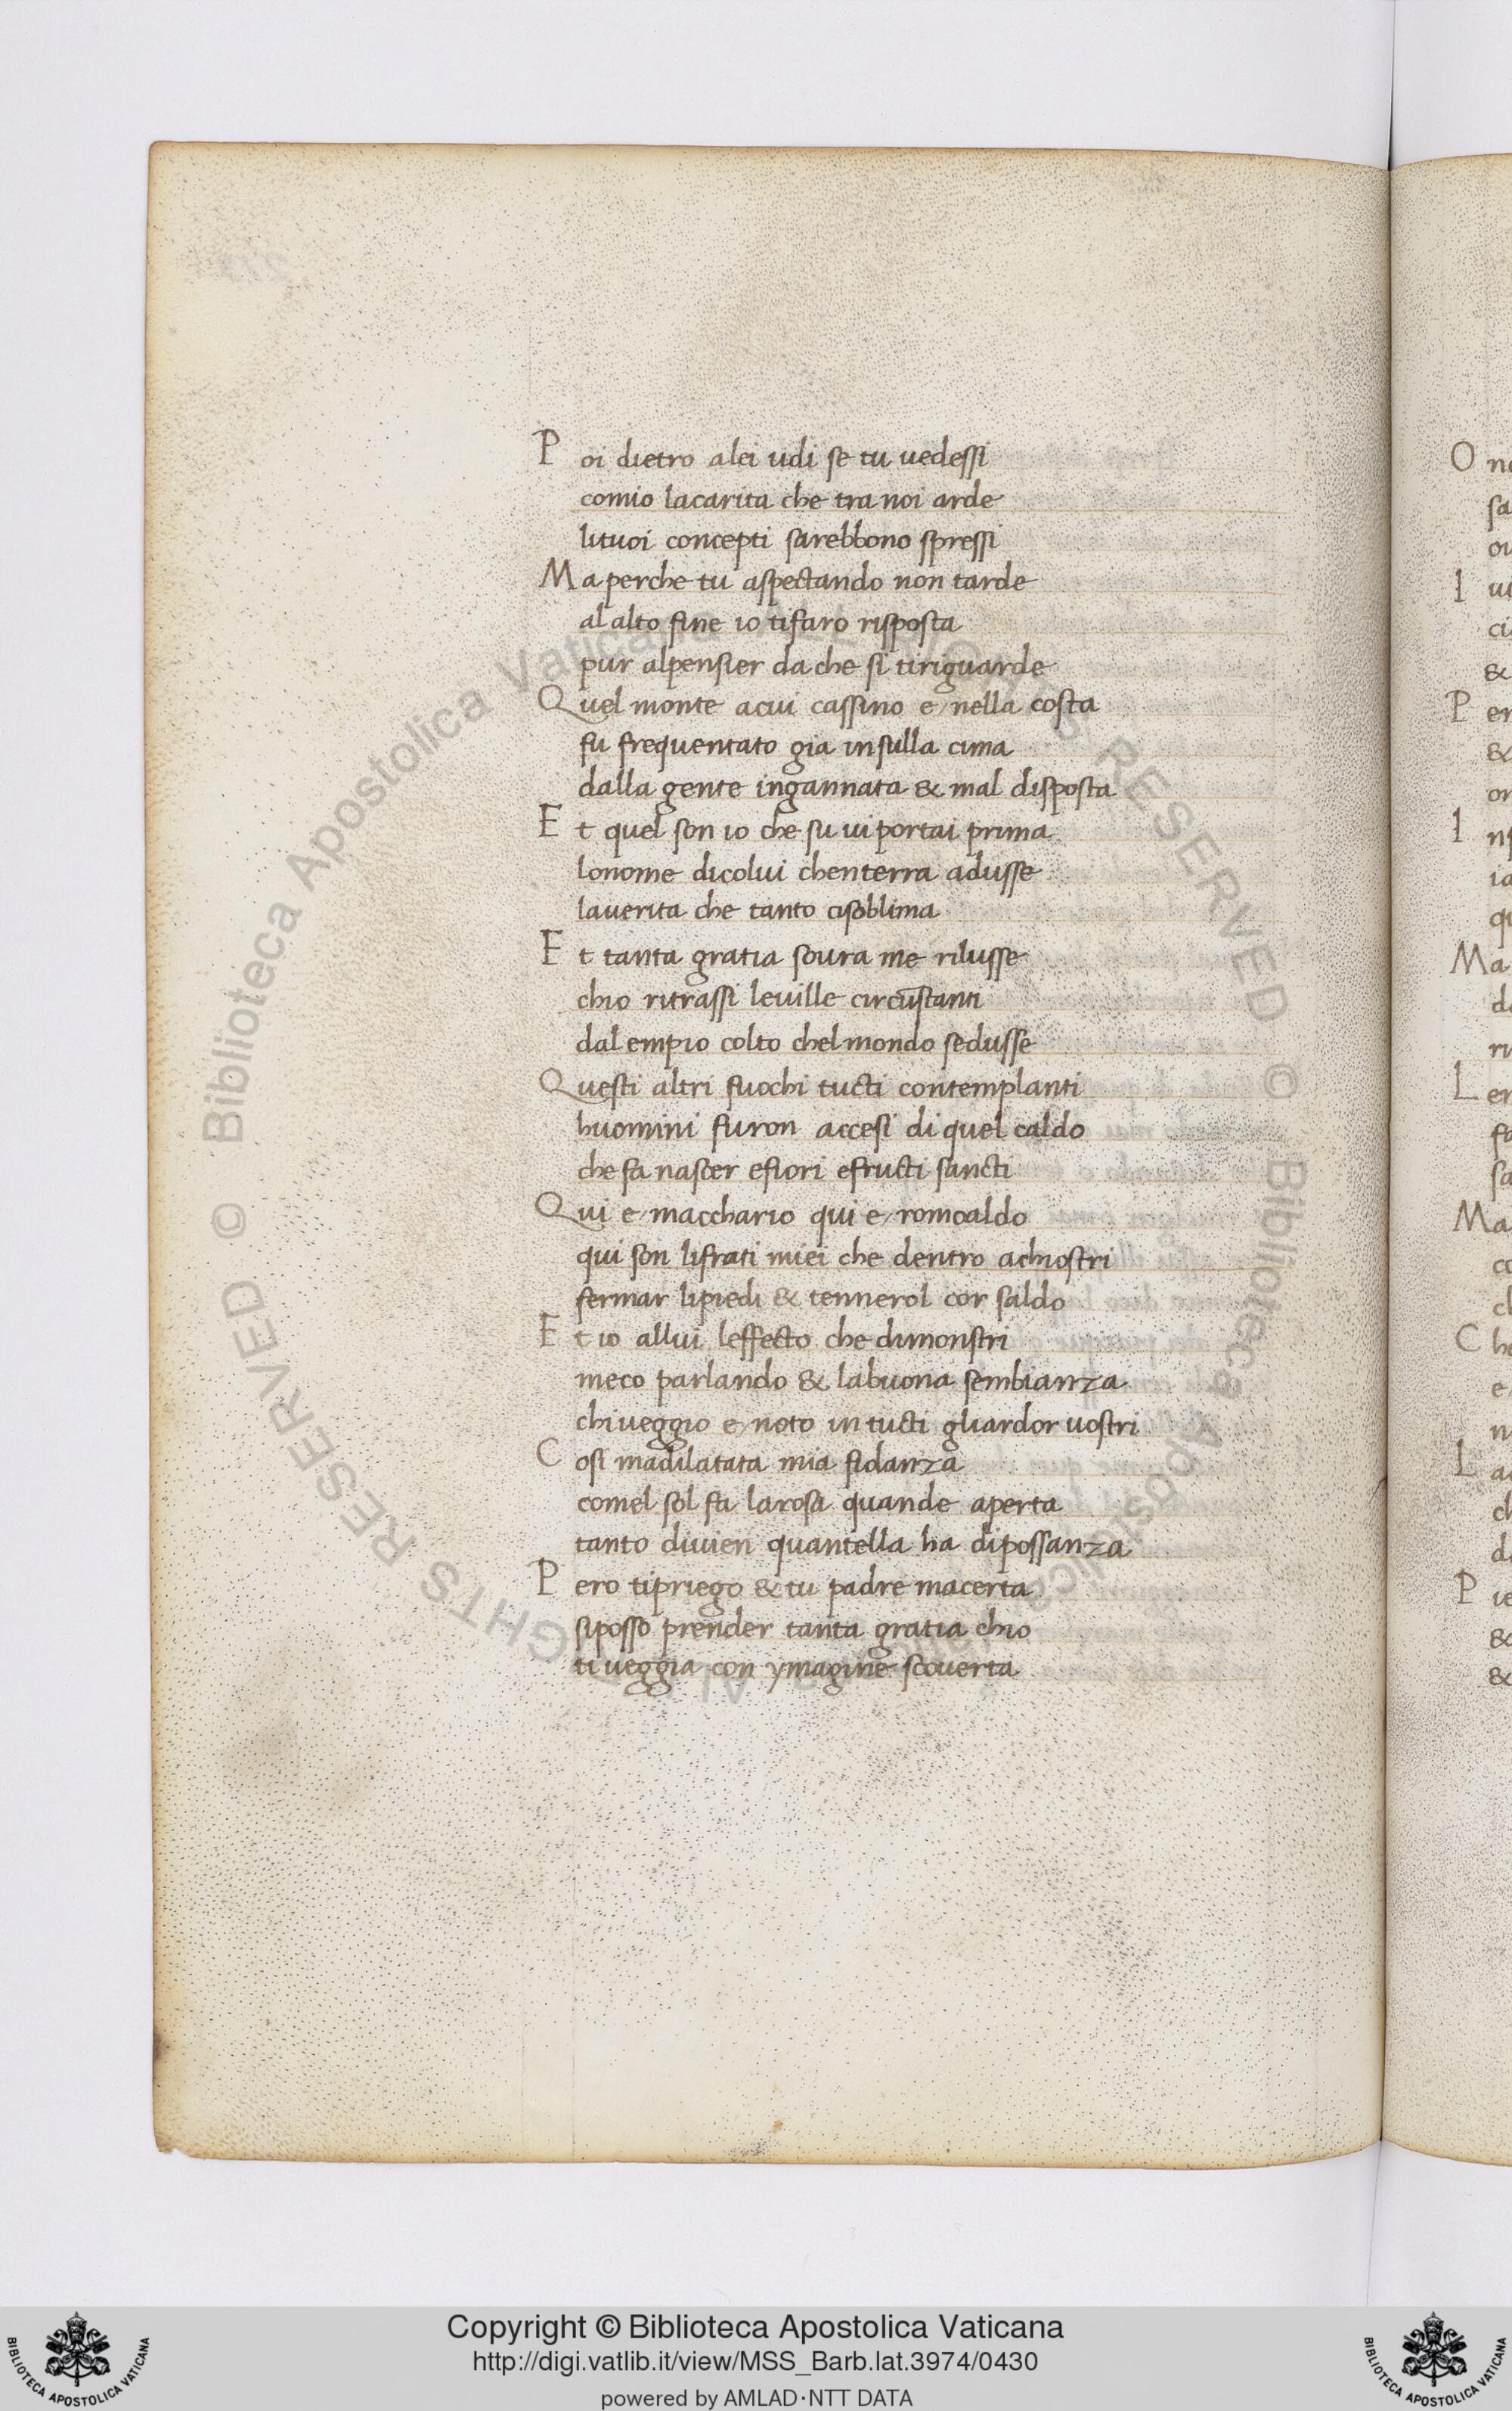 Poi dietro alei udi se tu uedessi
comio lacarita che tra noi arde
lituoi concepti sarebbono spressi
Ma perche tu aspectando non tarde
al alto fine io tifaro risposta
pur alpensier da che si tiriguarde
Quel monte acui cassino e/ nella costa
fu frequentato gia insulla cima
dalla gente ingannata & mal disposta
Et quel son io che su ui portai prima
lonome dicolui chenterra adusse
lauerita che tanto cisoblima
Et tanta gratia soura me rilusse
chio ritrassi leuille circūstanti
dal empio colto chel mondo sedusse
Questi altri fuochi tucti contemplanti
huomini furon accesi di quel caldo
che fa nascer efiori efructi sancti
Qui e/ macchario qui e/ romoaldo
qui son lifrati miei che dentro achiostri
fermar lipiedi & tennerol cor saldo
Et io allui leffecto che dimonstri
meco parlando & labuona sembianza
chiueggio e/ noto in tucti gliardor uostri
Cosi madilatata mia fidanza
comel sol fa larosa quande aperta
tanto diuien quantella ha dipossanza
Pero tipriego & tu padre macerta
siposso prender tanta gratia chio
ti ueggia con ymagine scouerta
O
sa
I
ci
&
P er
&
or
I
ia
qu
Ma
da
L er
sa
Ma
co
C
e/
L
P
&
&
© Biblioteca Apostolica Vaticana ALL RIGHTS RESERVED © Biblioteca Apostolica Vaticana ALL RIGHTS RESERVED
BIBLIOTECA APOSTOLICA VATICANA
Copyright © Biblioteca Apostolica Vaticana
http://digi.vatlib.it/view/MSS_Barb.lat.3974/0430
powered by AMLAD·NTT DATA
BIBLIOTECA APOSTOLICA VATICANA